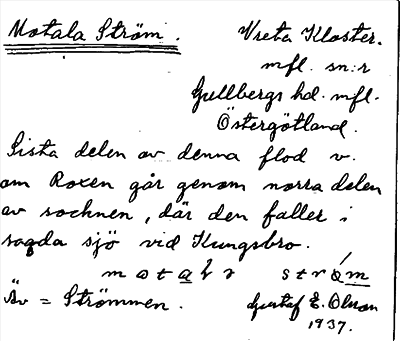 Motala Ström.
Vreta Kloster.
mfl. sn:r
Gullbergs hd. mfl.
Östergötland.
Sista delen av denna flod v.
om Roxen går genom norra delen
av socknen, där den faller i
sagda sjö vid Kungsbro.
Äv = Strömmen.
Gustaf E. Olsson
1937.